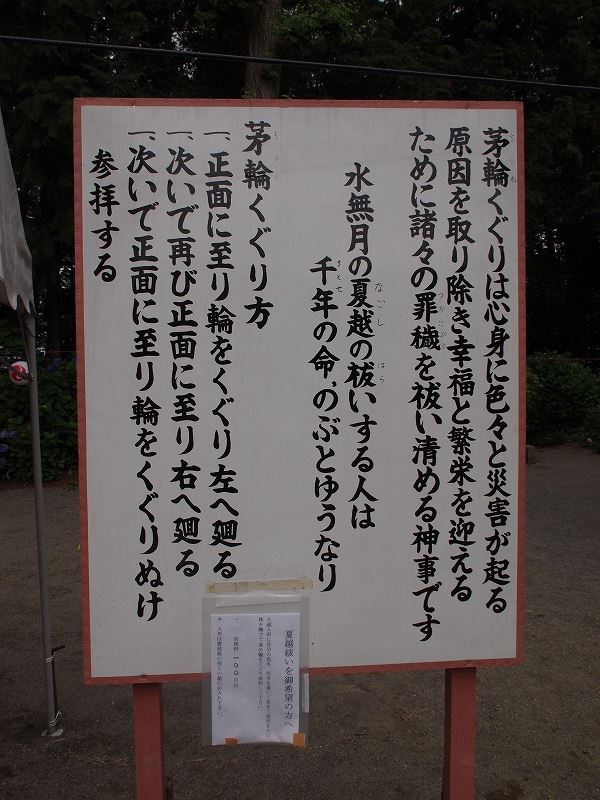 茅輪くぐりは心身に色々と災害が起る
原因を取り除き幸福と繁栄を迎える
ために諸々の罪穢を祓い清める神事です
水無月の夏越の祓いする人は
千年の命、のぶとゆうなり
茅輪くぐり方
一、正面に至り輪をくぐり左へ廻る
一、次いで再び正面に至り右へ廻る
一、次いで正面に至り輪をくぐりぬけ
参拝する
夏越祓いを御希望の方へ
一、初穂料 一〇〇円也